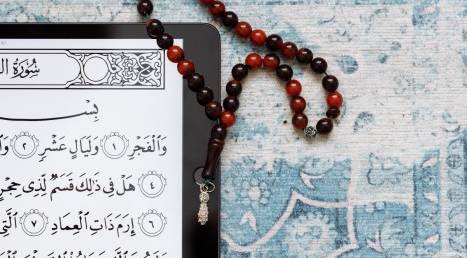 سُورَةُ ال
بِسْـ
وَٱلْفَجْرِ ١ وَلَيَالٍ عَشْرٍ ٢
٤ هَلْ فِى ذَٰلِكَ قَسَمٌ لِّذِى حِجْرٍ
٦ إِرَمَ ذَاتِ ٱلْعِمَادِ ٧ ٱلَّتِى